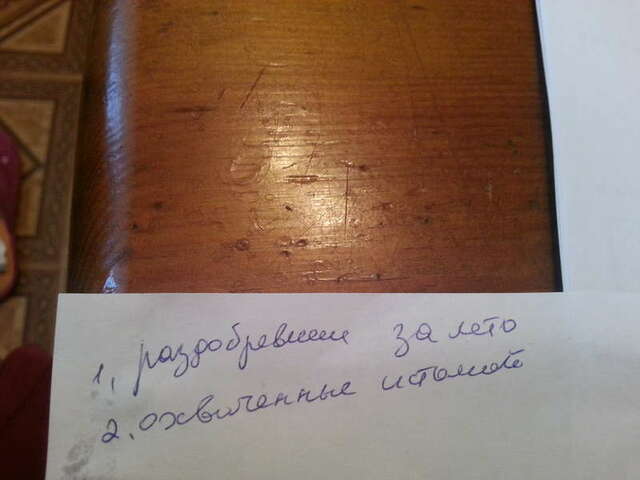 1, раздобревшие за лето
2. охваченные истомой